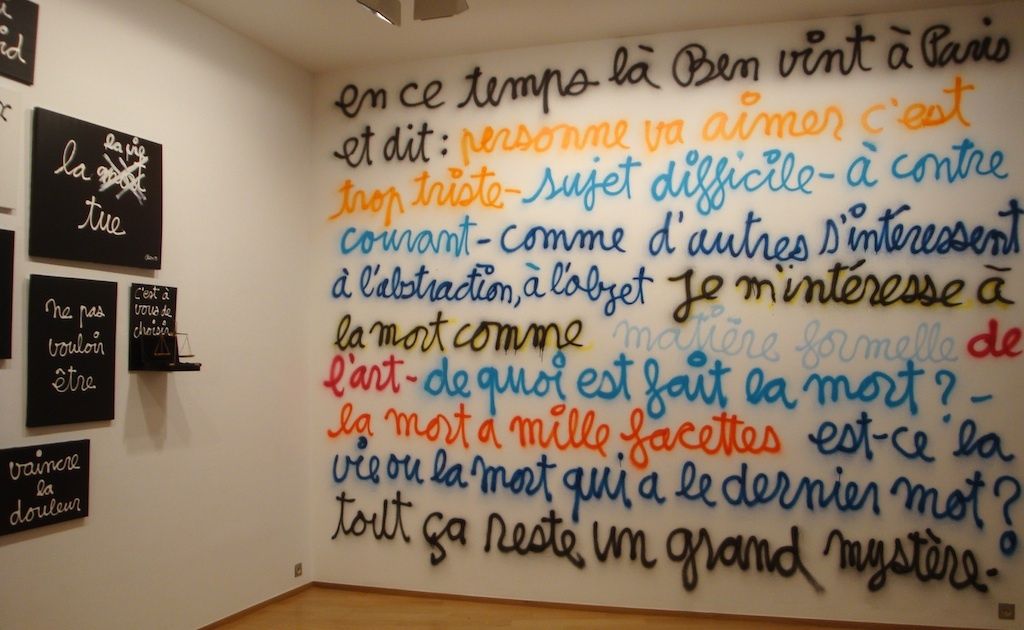 la vie
la mort
tue
ne pas
vouloir
être
c'est à
vous de
choisir
vaincre
la
douleur
en ce temps là Ben vint à Paris
et dit : personne va aimer c'est
trop triste - sujet difficile - à contre
courant - comme d'autres s'intéressent
à l'abstraction, à l'objet je m'intéresse à
la mort comme matière formelle de
l'art - de quoi est fait la mort ? -
la mort a mille facettes est-ce la
vie ou la mort qui a le dernier mot ?
tout ça reste un grand mystère.